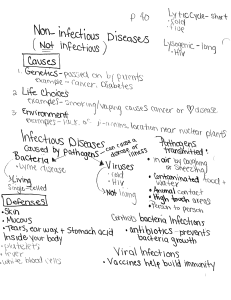 p. 90
Lytic Cycle - short
• Cold
• Flue
Lysogenic - long
• HIV
Non-infectious Diseases
(Not infectious)
Causes
1. Genetics - passed on by parents
example - cancer, diabetes
2. Life Choices
examples - smoking/vaping causes cancer or ♡ disease
3. Environment
examples - location near nuclear plants
Infectious Diseases
caused by pathogens
can cause a disease or illness
Bacteria
• Lyme disease
• Living
Single-celled
Viruses
• Cold
• HIV
• Not living
Pathogens transmitted:
• in air by (coughing or sneezing)
• Contaminated food + water
• Animal contact
• High touch areas
• Person to person
Defenses
• Skin
• Mucous
• Tears, ear wax + stomach acid
Inside your body
• platelets
• fever
• white blood cells
Controls bacteria Infections
• antibiotics - prevents bacteria growth
Viral Infections
• Vaccines help build immunity